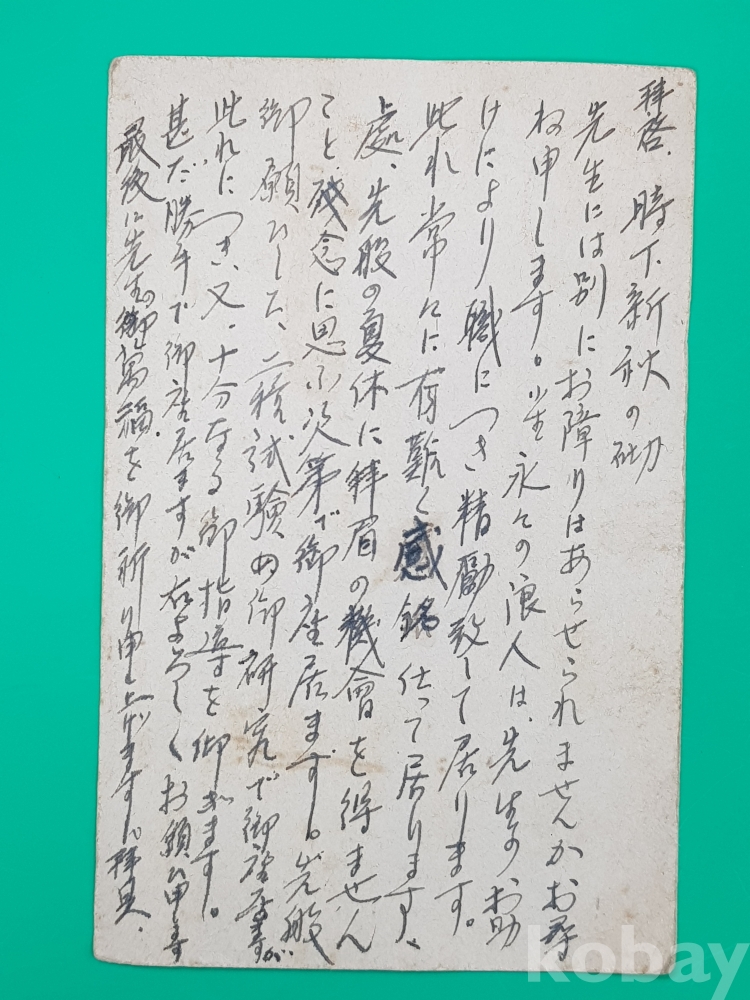 拝啓、時下新秋の砌
先生には別にお障りはあらせられませんかお尋
ね申します。小生永々の浪人は、先生のお助
けにより職につき精励致して居ります。
此れ常々に有難く感銘仕って居ります、
處、先般の夏休に拝眉の機會を得ません
こと残念に思ふ次第で御座居ます。先般
御願ひした、二種試験の御研究で御座居ますが
此れにつき、又、十分なる御指導を御ぎます。
甚だ勝手で御座居ますが右よろしくお願ひ申ます
最後に先生の御萬福を御祈り申上げます。拝具、
kobay